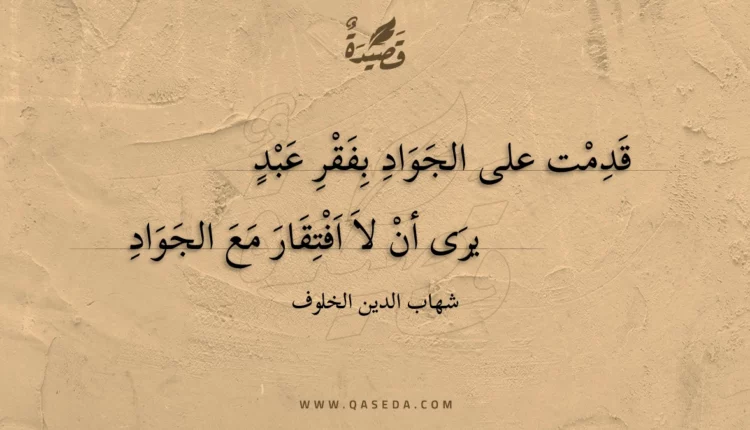 قَصِيدَةٌ
قَدِمْت على الجَوَادِ بِفَقْرِ عَبْدٍ
يرَى أنْ لاَ اَفْتِقَارَ مَعَ الجَوَادِ
شهاب الدين الخلوف
WWW.QASEDA.COM